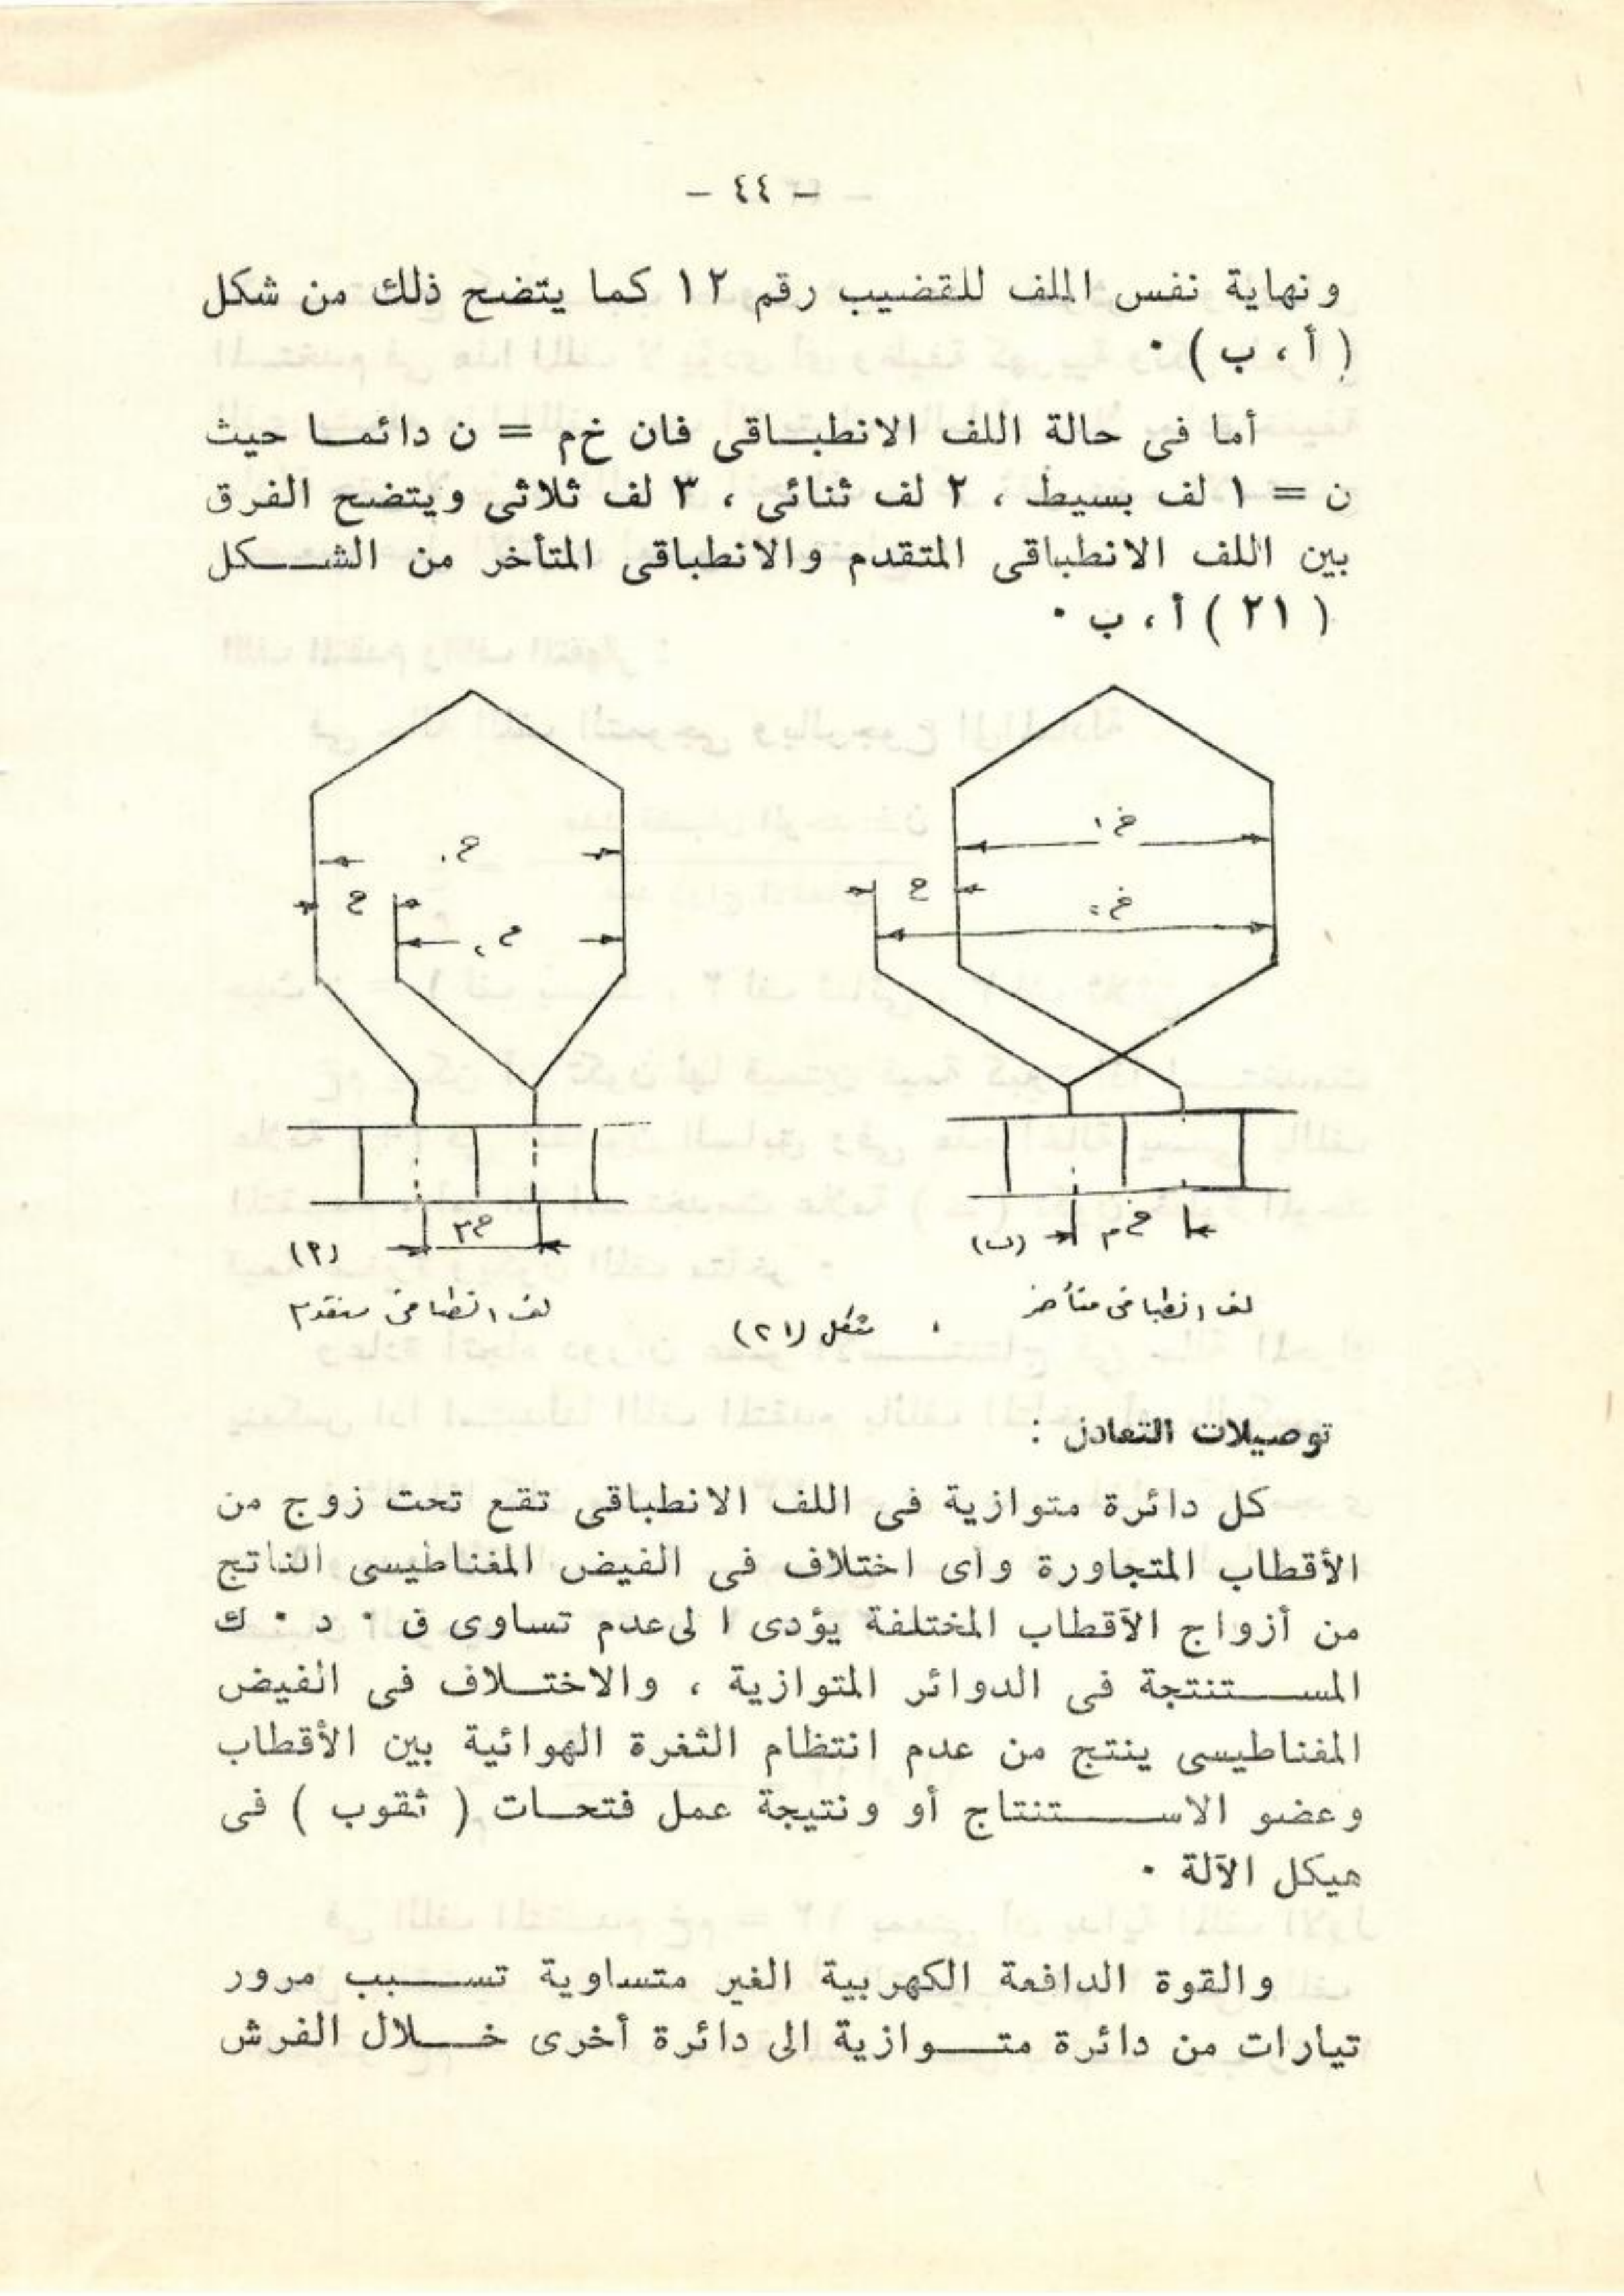 - ٤٤ -
ونهاية نفس الملف للقضيب رقم ١٢ كما يتضح ذلك من شكل
( أ ، ب ) ٠
أما فى حالة اللف الانطبـاقى فان خم = ن دائمـا حيث
ن = ١ لف بسيط ، ٢ لف ثنائى ، ٣ لف ثلاثى ويتضح الفرق
بين اللف الانطباقى المتقدم والانطباقى المتأخر من الشـكل
( ٢١ ) أ ، ب ٠
خ١
خ
خ٢
خ١
خ
خ٢
خم
(ب)
خم
(أ)
لف انطباقى متأخر
لف انطباقى متقدم
شكل (٢١)
توصيلات التعادل :
كل دائرة متوازية فى اللف الانطباقى تقع تحت زوج من
الأقطاب المتجاورة واى اختلاف فى الفيض المغناطيسى الناتج
من أزواج الأقطاب المختلفة يؤدى الى عدم تساوى ق ٠ د ٠ ك
المسـتنتجة فى الدوائر المتوازية ، والاختـلاف فى الفيض
المغناطيسى ينتج من عدم انتظام الثغرة الهوائية بين الأقطاب
وعضو الاسـتنتاج أو ونتيجة عمل فتحـات ( ثقوب ) فى
هيكل الآلة ٠
والقوة الدافعة الكهربية الغير متساوية تسـبب مرور
تيارات من دائرة متـوازية الى دائرة أخرى خـلال الفرش